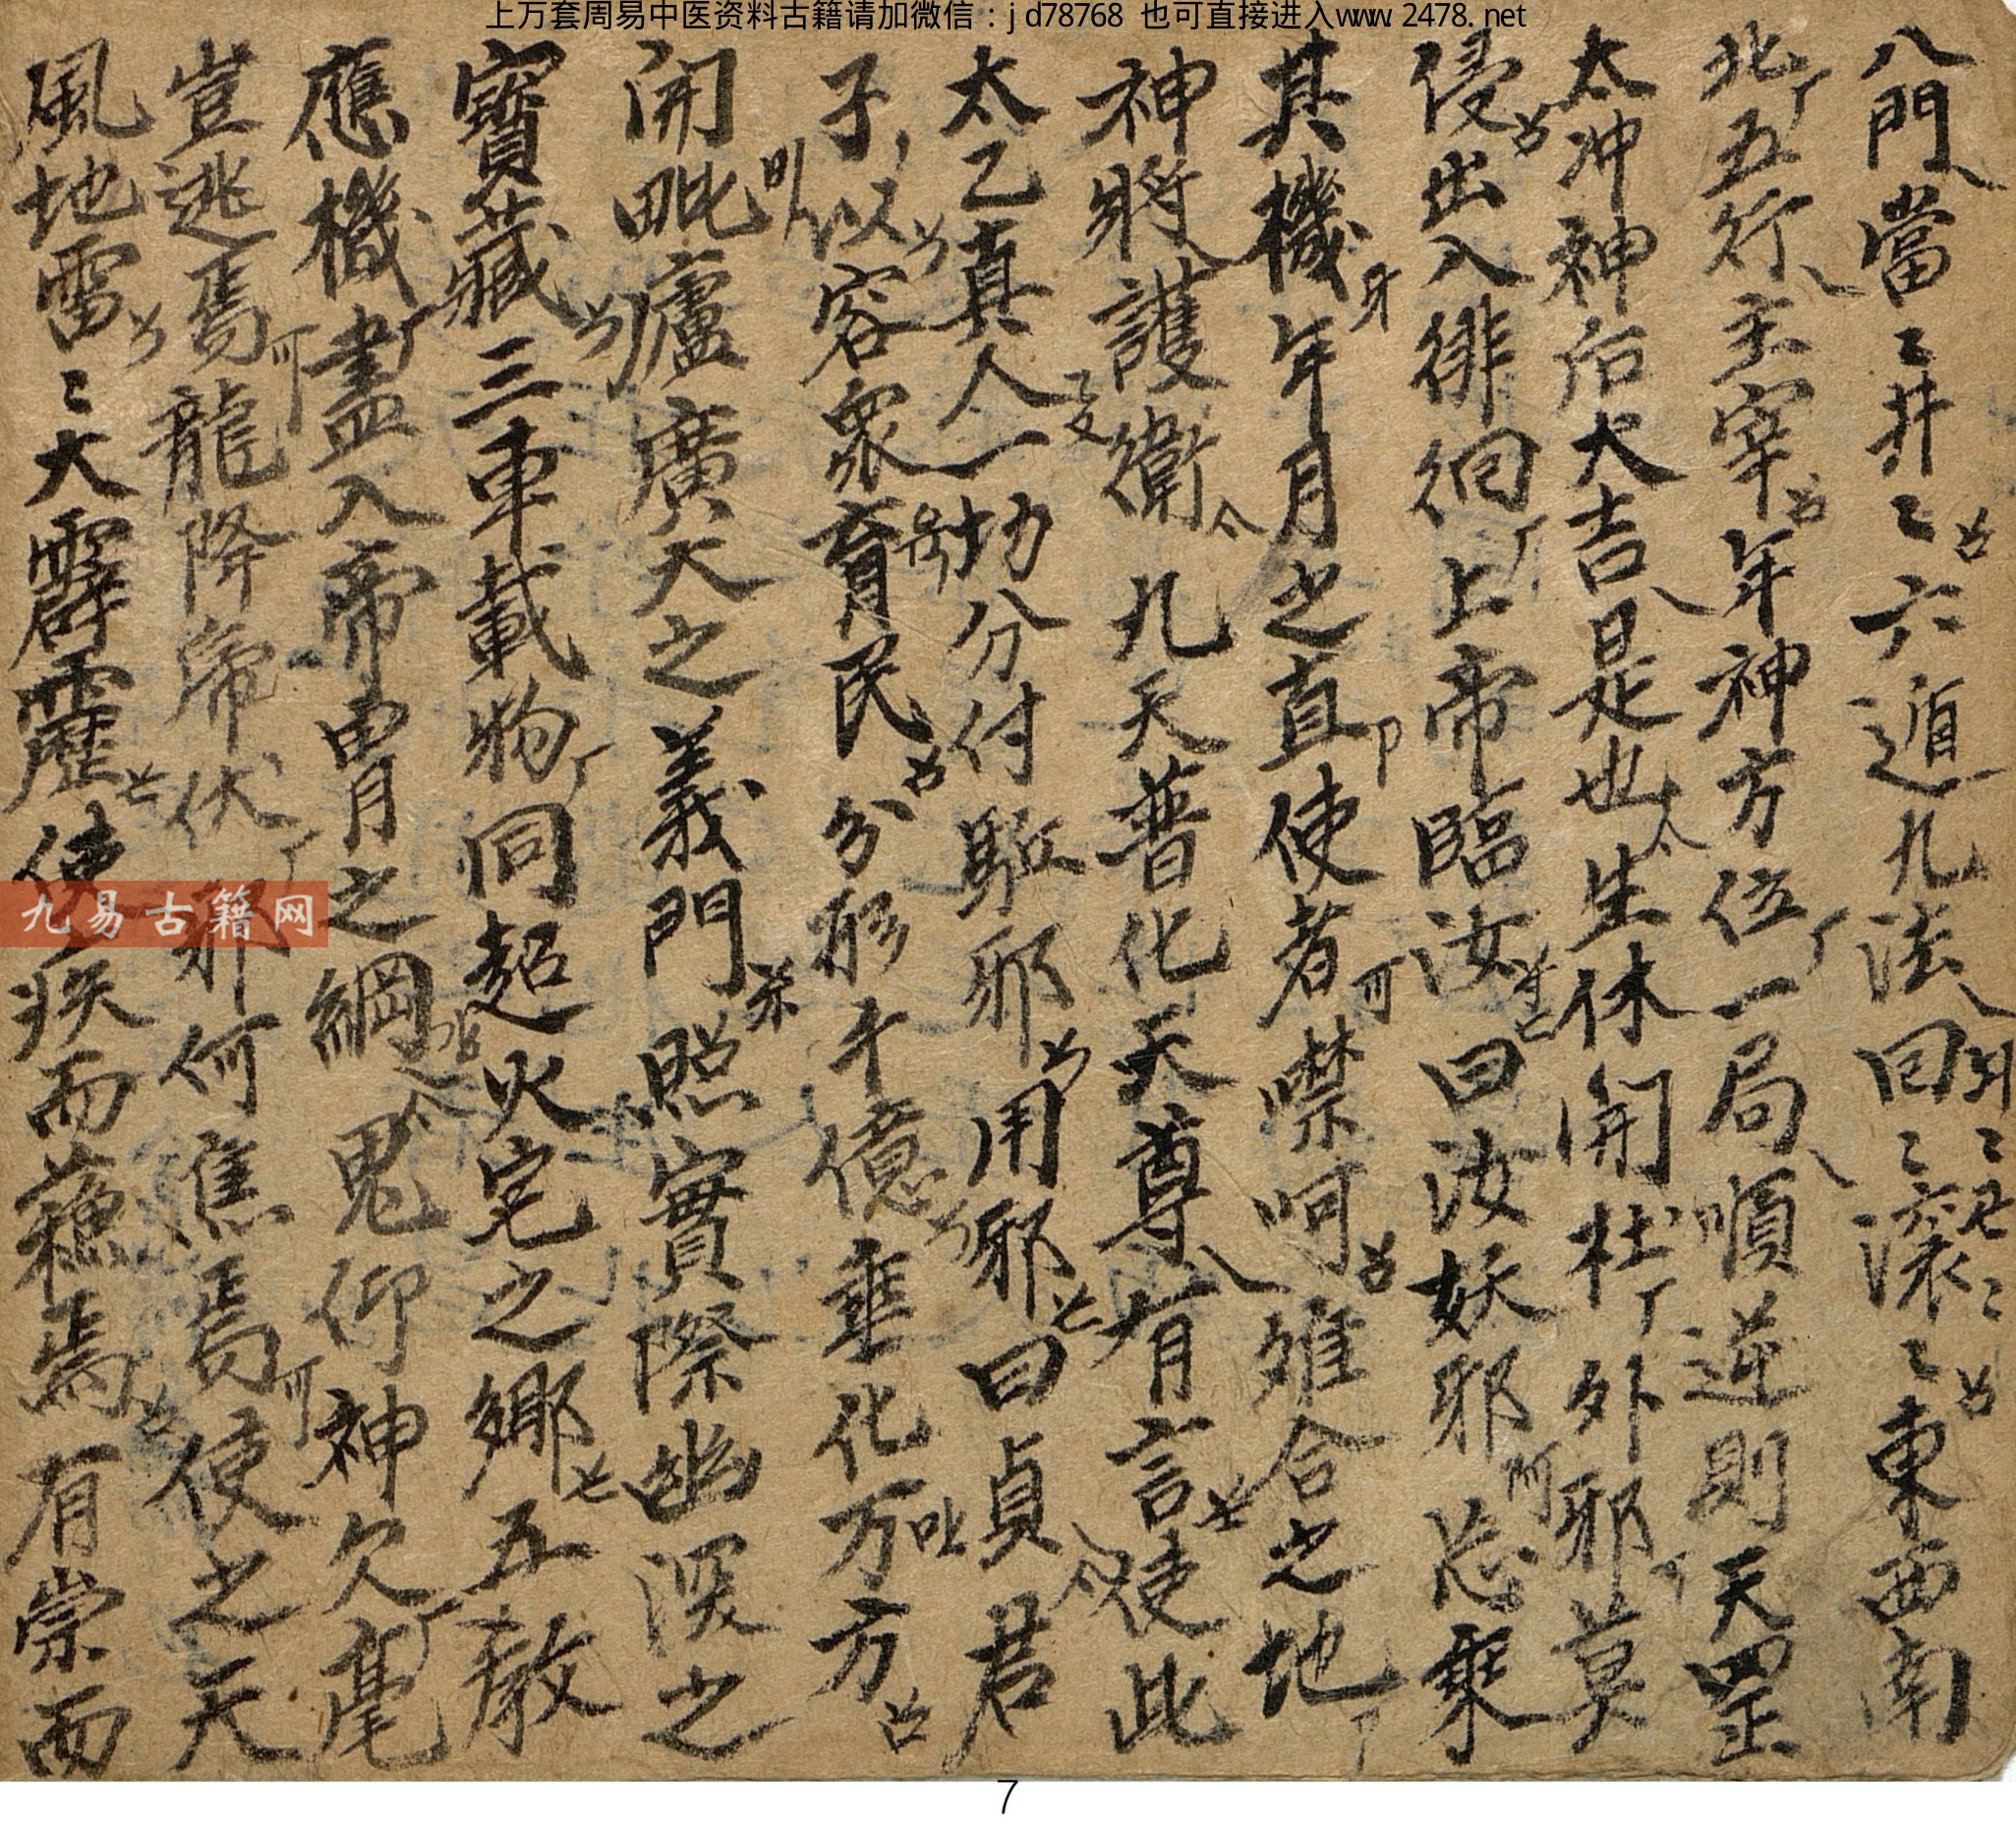 上万套周易中医资料古籍请加微信：jd78768 也可直接进入www.2478.net
八門當〻井〻六遁九法回〻滾〻東西南
北五行主宰年神方位一局順逆則天罡
太冲神后大吉是也生休開杜外邪莫
侵出入徘徊上帝臨汝曰汝妖邪 乘
其機年月之直使者噤呵难合之地
神將護衛九天普化天尊有言使此
太乙真人一切分付駈邪用邪曰貞君
子以容衆育民分形千億垂化万方
開毗廬廣大之義門照實際幽深之
寶藏三車載物同超火宅之鄉五教
應機盡入帝胄之綱鬼仰神欠毫
豈逃焉龍降帝伏邪何焦焉使之天
風地雷〻大霹靂使 疾而 焉有崇而
九易古籍网
7